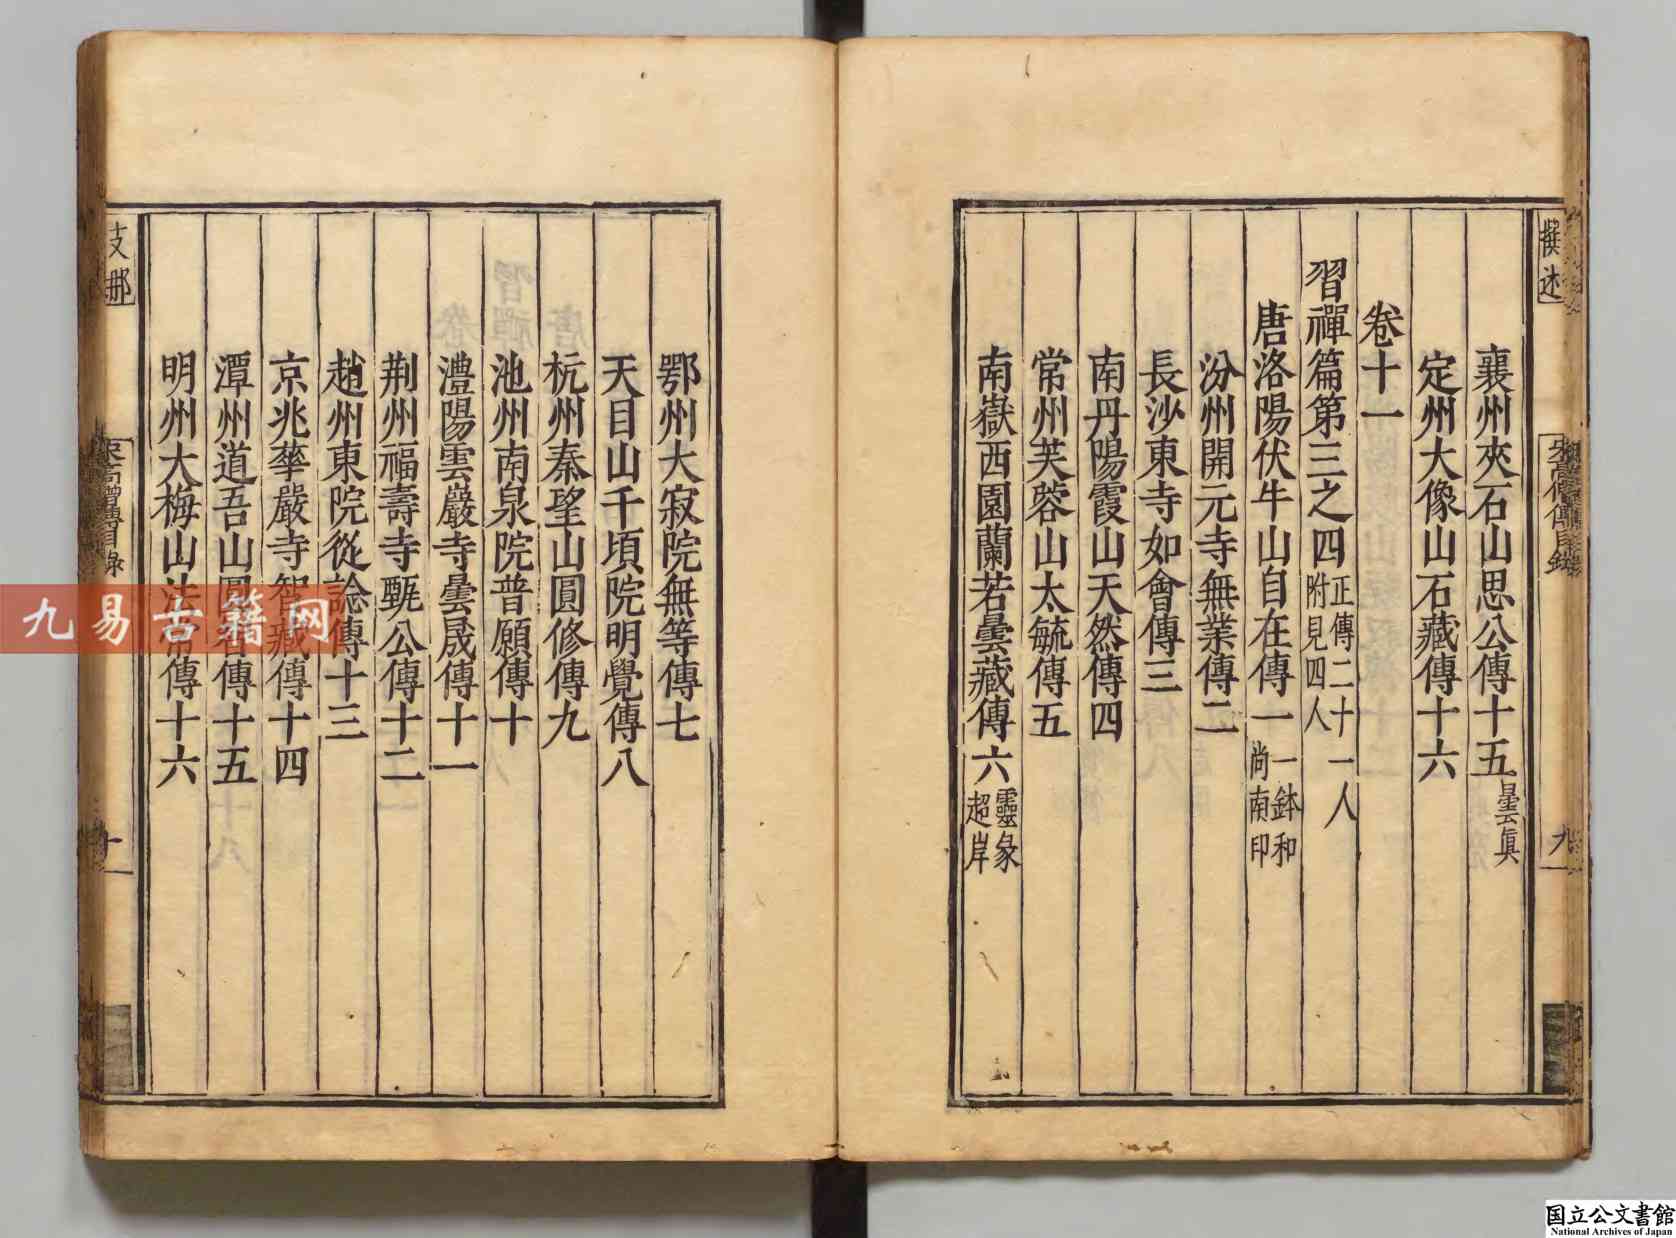 撰述
宋高僧傳目錄
九
襄州夾石山思公傳十五 曇真
定州大像山石藏傳十六
卷十一
習禪篇第三之四 正傳二十一人 附見四人
唐洛陽伏牛山自在傳一 一鉢和尚 南印
汾州開元寺無業傳二
長沙東寺如會傳三
南丹陽霞山天然傳四
常州芙蓉山太毓傳五
南嶽西園蘭若曇藏傳六 靈彖 超岸
鄂州大寂院無等傳七
天目山千頃院明覺傳八
杭州秦望山圓修傳九
池州南泉院普願傳十
澧陽雲巖寺曇晟傳十一
荆州福壽寺甄公傳十二
趙州東院從諗傳十三
京兆華嚴寺智藏傳十四
潭州道吾山圓智傳十五
明州大梅山法常傳十六
支那
宋高僧傳目錄
九易古籍网
国立公文書館
National Archives of Japan